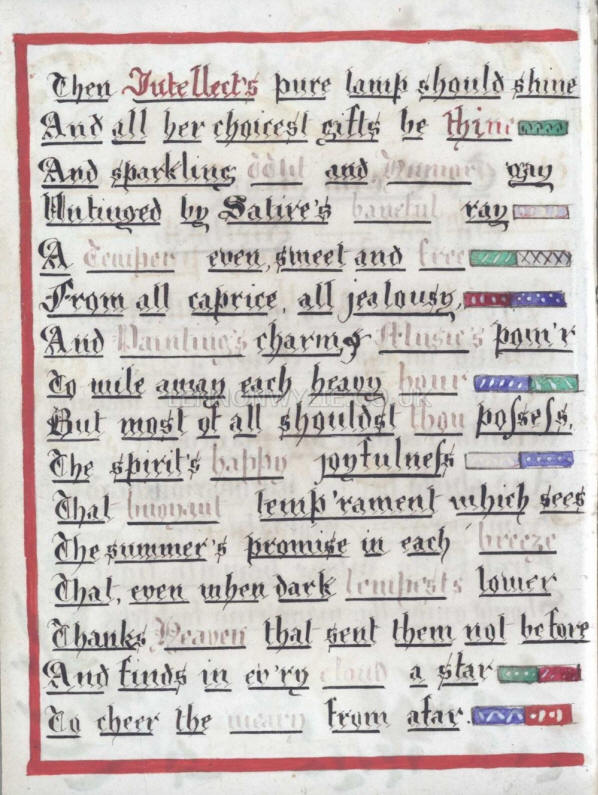 Then Intellect's pure lamp should shine
And all her choicest gifts be thine
And sparkling Wit and Humor gay
Untinged by Satire's baneful ray
A Temper even, sweet and free
From all caprice, all jealousy,
And Painting's charms Music's pow'r
To wile away each heavy hour
LENNONWYLIE.CO.UK
But most of all shouldst thou poſseſs,
The spirit's happy joyfulneſs
That buoyant temp'rament which sees
The summer's promise in each breeze
That, even when dark tempests lower
Thanks Heaven that sent them not before
And finds in ev'ry cloud a star
To cheer the weary from afar.